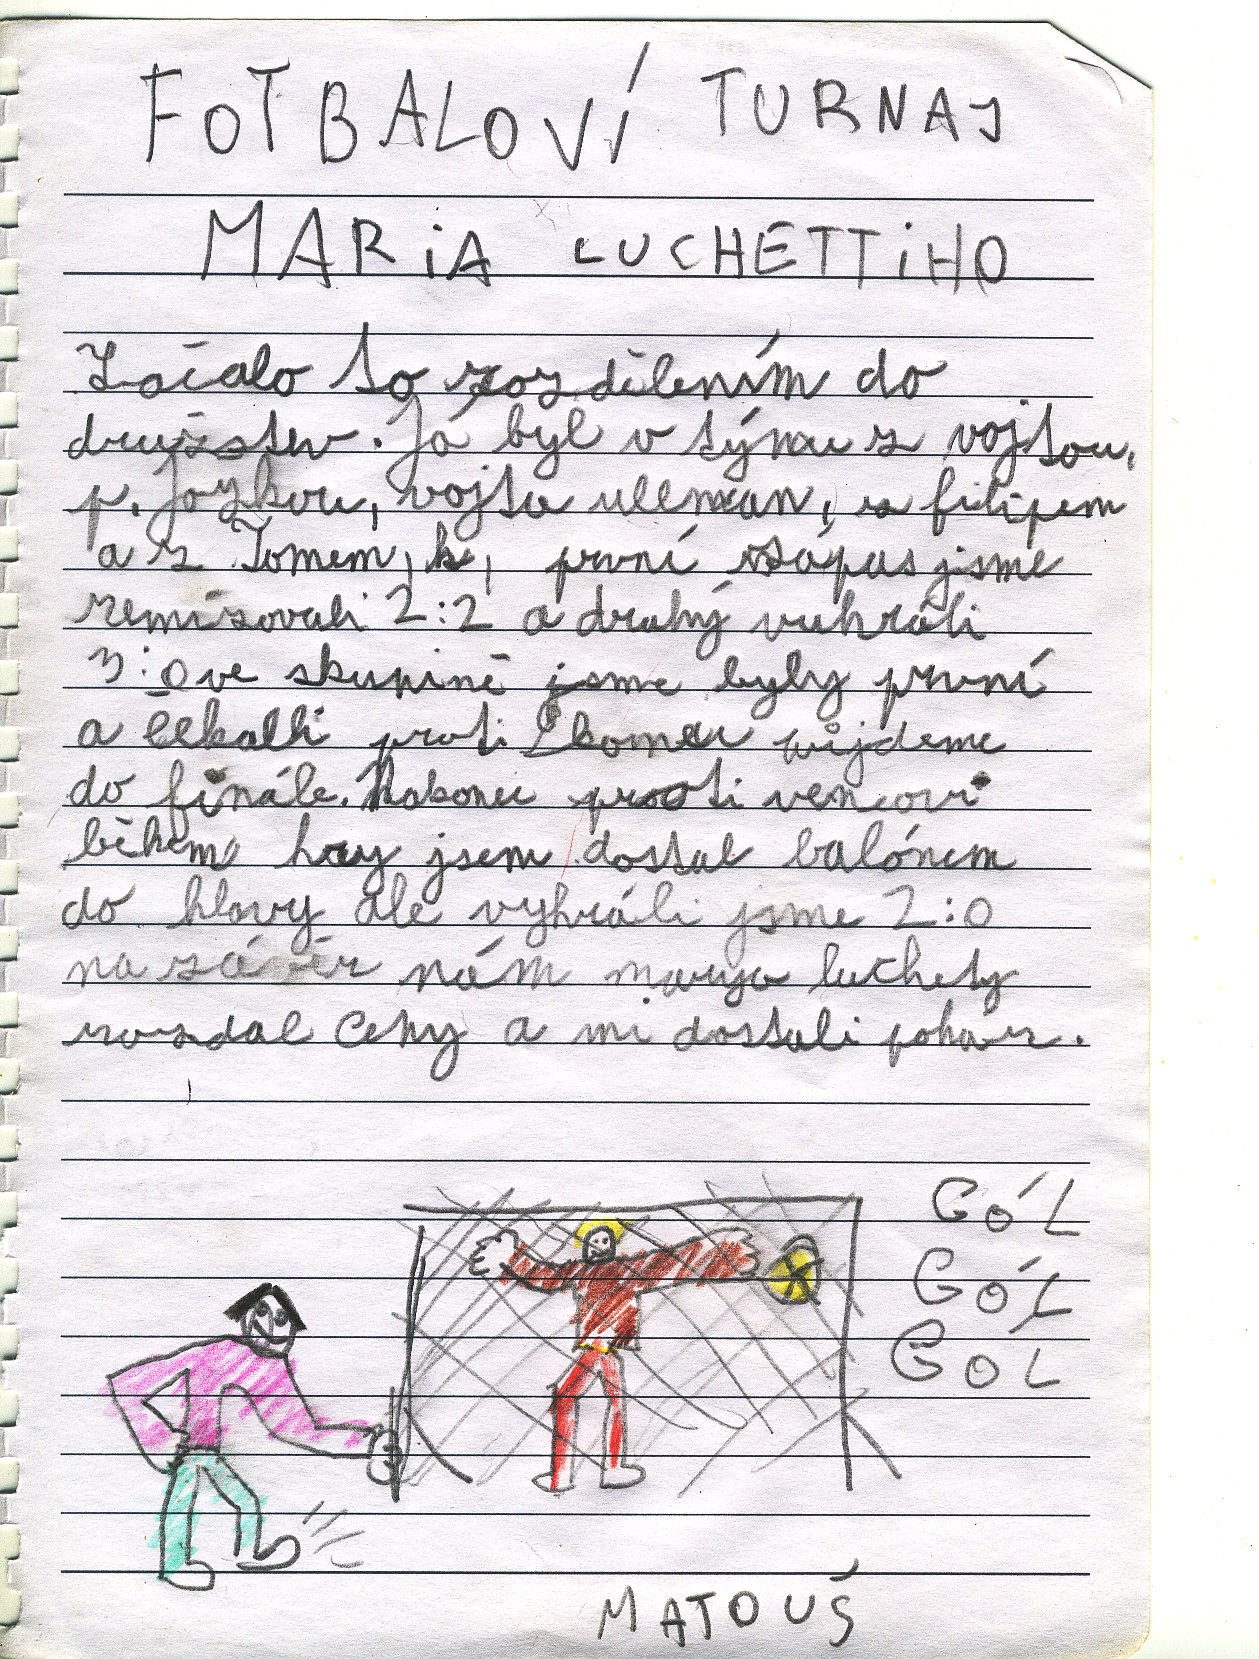 FOTBALOVÍ TURNAJ
MARiA LUCHETTiHO
Začalo to rozdělením do
družstev. Já byl v týmu z vojtou,
p. Joykou, vojta ullman, a filipem
a z Tomem, k, první zápas jsme
remizovali 2:2 a druhý vuhráli
3:0 ve skupině jsme byly první
a čekalli proti komu pujdeme
do finále. Nakonec prooti vencovi
během hry jsem dostal balónem
do hlavy ale vyhráli jsme 2:0
na závěr nám maryo luchety
rozdal Ceny a mi dostali pohár.
GÓL
GÓL
GOL
MATOUŚ